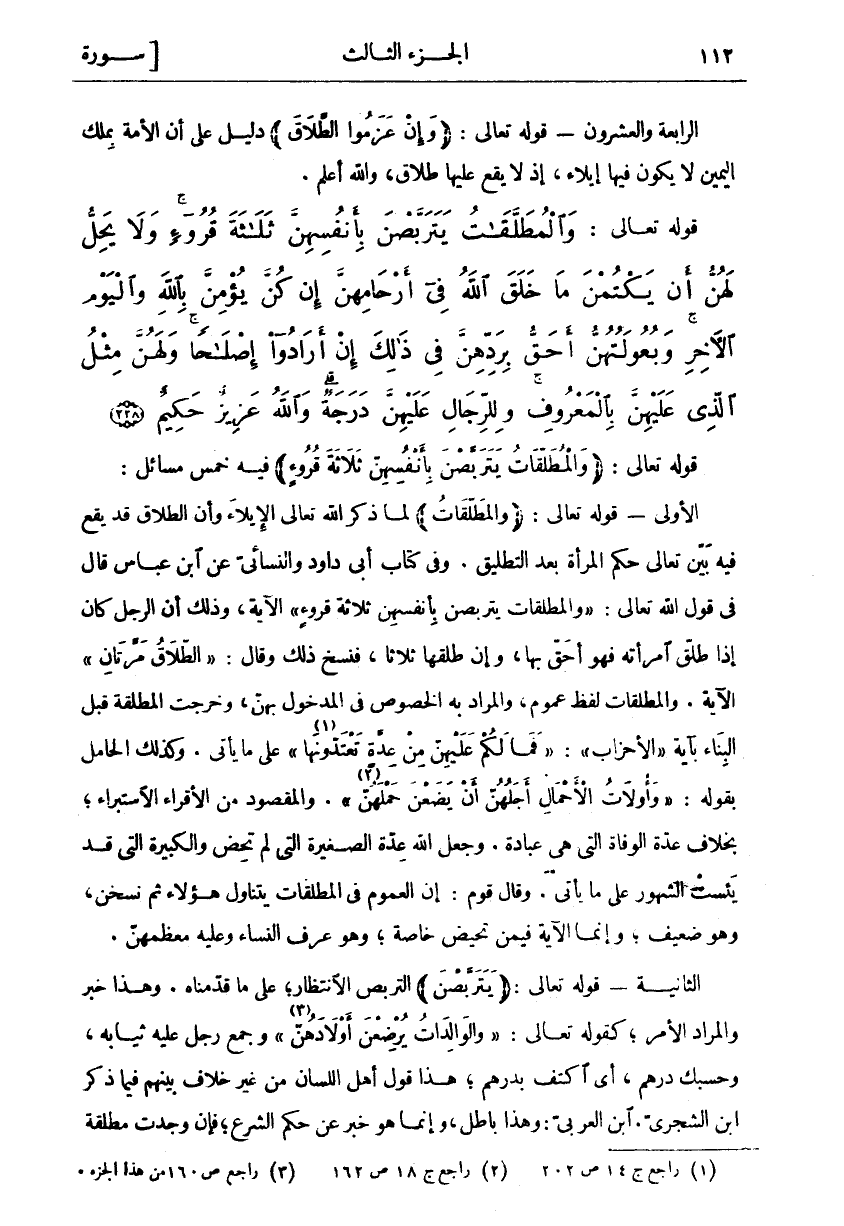 ١١٢ الجـــزء الثـالث [ ســـورة
الرابعة والعشرون — قوله تعالى : ﴿وَإِنْ عَزَمُوا الطَّلَاقَ﴾ دليـل على أن الأمة بملك
اليمين لا يكون فيها إيلاء ، إذ لا يقع عليها طلاق، والله أعلم .
قوله تعـالى : وَٱلْمُطَلَّقَـٰتُ يَتَرَبَّصْنَ بِأَنفُسِهِنَّ ثَلَـٰثَةَ قُرُوٓءٍ ۚ وَلَا يَحِلُّ
لَهُنَّ أَن يَكْتُمْنَ مَا خَلَقَ ٱللَّهُ فِىٓ أَرْحَامِهِنَّ إِن كُنَّ يُؤْمِنَّ بِٱللَّهِ وَٱلْيَوْمِ
ٱلْآخِرِ ۚ وَبُعُولَتُهُنَّ أَحَقُّ بِرَدِّهِنَّ فِى ذَٰلِكَ إِنْ أَرَادُوٓا۟ إِصْلَـٰحًا ۚ وَلَهُنَّ مِثْلُ
ٱلَّذِى عَلَيْهِنَّ بِٱلْمَعْرُوفِ ۚ وَلِلرِّجَالِ عَلَيْهِنَّ دَرَجَةٌ ۗ وَٱللَّهُ عَزِيزٌ حَكِيمٌ ﴿٢٢٨﴾
قوله تعالى : ﴿وَالْمُطَلَّقَاتُ يَتَرَبَّصْنَ بِأَنْفُسِهِنّ ثَلَاثَةَ قُرُوءٍ﴾ فيـه خمس مسائل :
الأولى — قوله تعالى : ﴿والمُطَلّقَاتُ﴾ لمـا ذكر الله تعالى الإيلاءَ وأن الطلاق قد يقع
فيه بَيّن تعالى حكم المرأة بعد التطليق . وفى كتاب أبى داود والنسائىّ عن ٱبن عبـاس قال
فى قول الله تعالى : «والمطلقات يتربصن بأنفسهن ثلاثة قروء» الآية، وذلك أن الرجل كان
إذا طلّق ٱمرأته فهو أحَقّ بها، وإن طلقها ثلاثا ، فنسخ ذلك وقال : « الطَّلَاقُ مَرَّتَانِ »
الآية . والمطلقات لفظ عموم، والمراد به الخصوص فى المدخول بهنّ، وخرجت المطلقة قبل
البِنَاء بآية «الأحزاب» : « فَمَـا لَكُمْ عَلَيْهِنّ مِنْ عِدَّةٍ تَعْتَدّونَهَا (١) » على ما يأتى . وكذلك الحامل
بقوله : « وَأُولَاتُ الْأَحْمَالِ أَجَلُهُنّ أَنْ يَضَعْنَ حَمْلَهُنّ (٢) » . والمقصود من الأقراء الاستبراء ؛
بخلاف عدّة الوفاة التى هى عبادة . وجعل الله عدّة الصـغيرة التى لم تحض والكبيرة التى قـد
يَئست الشهور على ما يأتى . وقال قوم : إن العموم فى المطلقات يتناول هـؤلاء ثم نسخن،
وهو ضعيف ؛ وإنمـا الآية فيمن تحيض خاصة ؛ وهو عرف النساء وعليه معظمهنّ .
الثانيــة — قوله تعالى : ﴿يَتَرَبَّصْنَ﴾ التربص الانتظار؛ على ما قدّمناه . وهـذا خبر
والمراد الأمر ؛ كقوله تعـالى : « والوَالِدَاتُ يُرْضِعْنَ أَوْلَادَهُنّ (٣) » وجمع رجل عليه ثيـابه ،
وحسبك درهم ، أى ٱكتف بدرهم ؛ هـذا قول أهل اللسان من غير خلاف بينهم فيما ذكر
ابن الشجرىّ . ٱبن العربىّ : وهذا باطل، وإنمـا هو خبر عن حكم الشرع ؛ فإن وجدت مطلقة
(١) راجع ج ١٤ ص ٢٠٢ (٢) راجع ج ١٨ ص ١٦٢ (٣) راجع ص ١٦٠ من هذا الجزء .